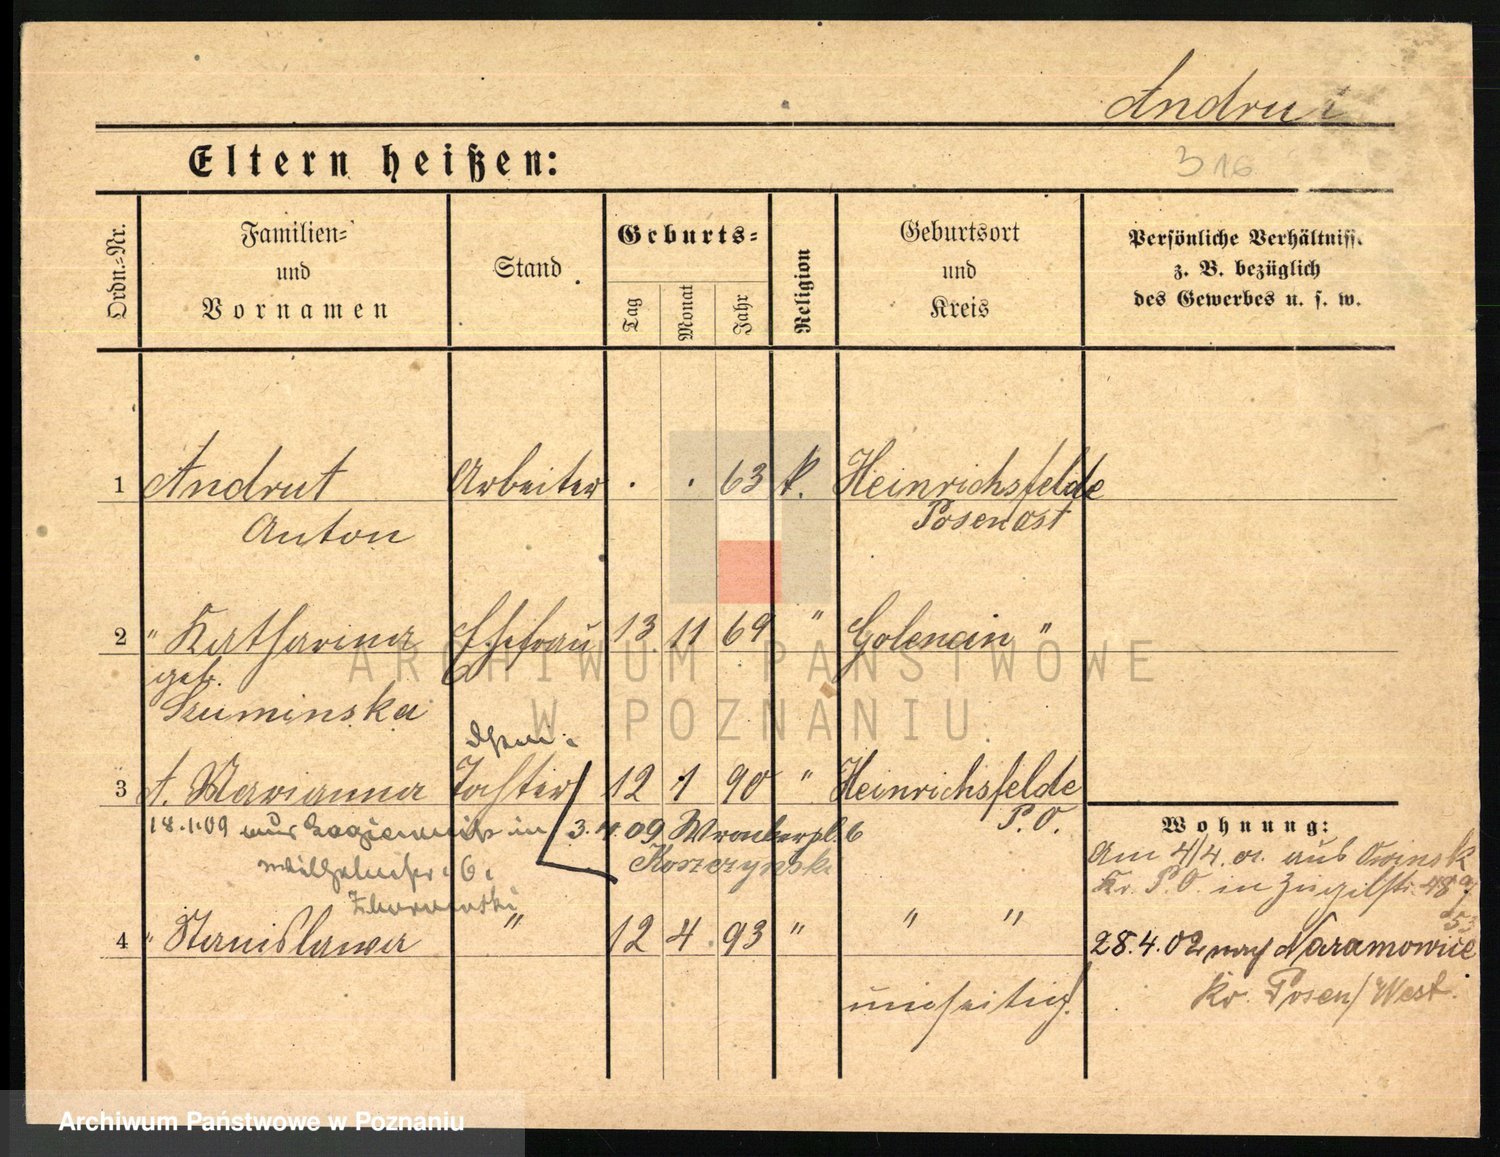 Andru
316
Eltern heißen:
Ordn.-Nr.
Familien-
und
Vornamen
Stand
Geburts-
Tag
Monat
Jahr
Religion
Geburtsort
und
Kreis
Persönliche Verhältniss
z. B. bezüglich
des Gewerbes u. s. w.
1 Andrut Arbeiter . . 63 k. Heinrichsfelde
Anton Posen Ost
2 " Katharina Ehefrau 13. 11 69 " Golencin "
geb.
Szuminska
3 A. Marianna Tochter 12 1 90 " Heinrichsfelde
P.O.
18.1.09 aus in 3. 09 Wronkerpl. 6
Wilhelmstr. 6. Koszczynski
4 " Stanislawa " 12 4. 93 " " "
umseitig!
Wohnung:
Am 4/4. aus Owinsk
Kr. P.O. in
53
28.4.02 nach Naramowice
Kr. Posen/West.
ARCHIWUM PAŃSTWOWE
W POZNANIU
Archiwum Państwowe w Poznaniu